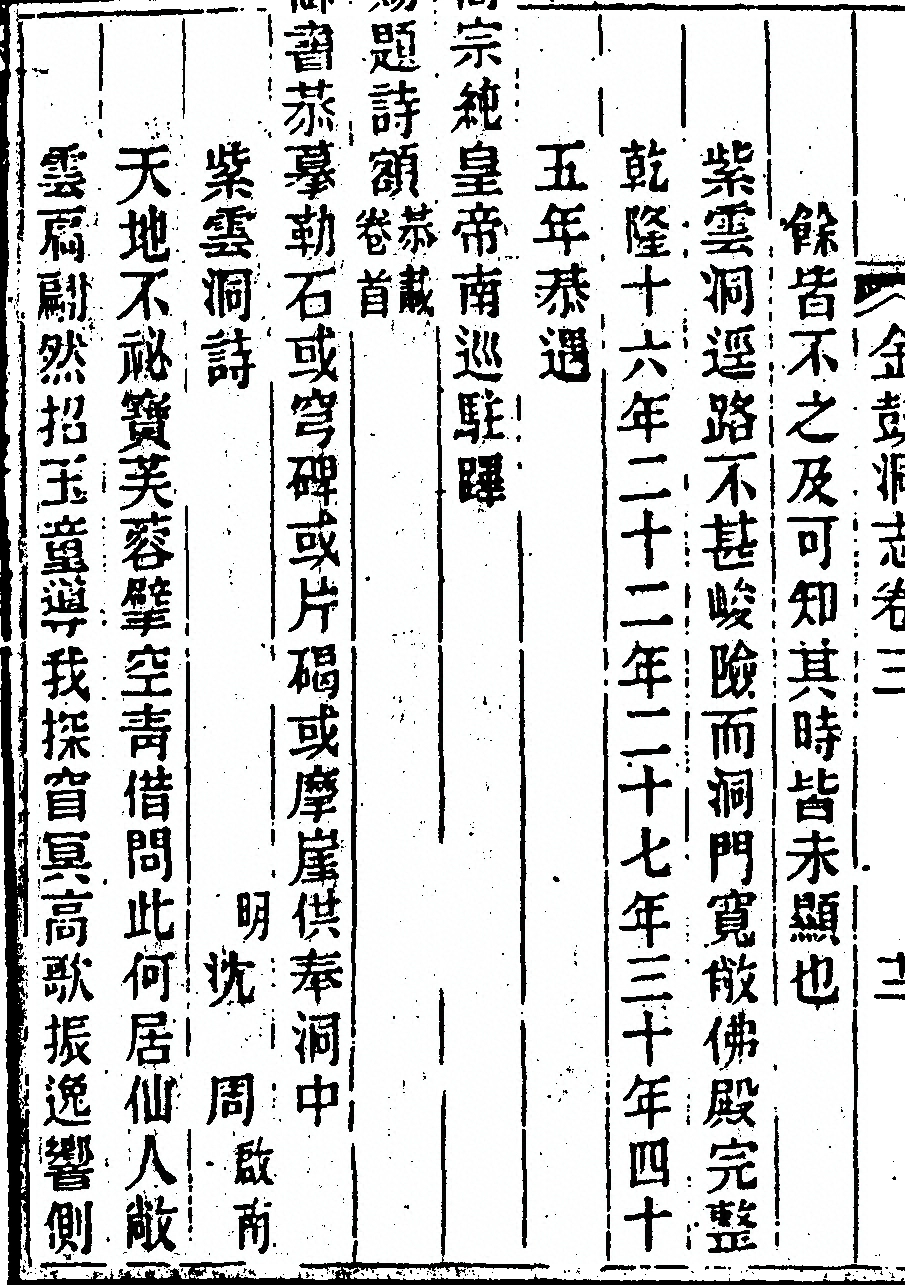 金彭洞志卷三 十二
餘皆不之及可知其時皆未顯也
紫雲洞逕路不甚峻險而洞門寬敞佛殿完整
乾隆十六年二十二年二十七年三十年四十
五年恭遇
高宗純皇帝南巡駐蹕
賜題詩額恭載卷首
御書恭摹勒石或穹碑或片碣或摩崖供奉洞中
紫雲洞詩 明沈周啟南
天地不祕寶芙蓉擘空青借問此何居仙人敞
雲扃翩然招玉童導我探窅冥高歌振逸響側